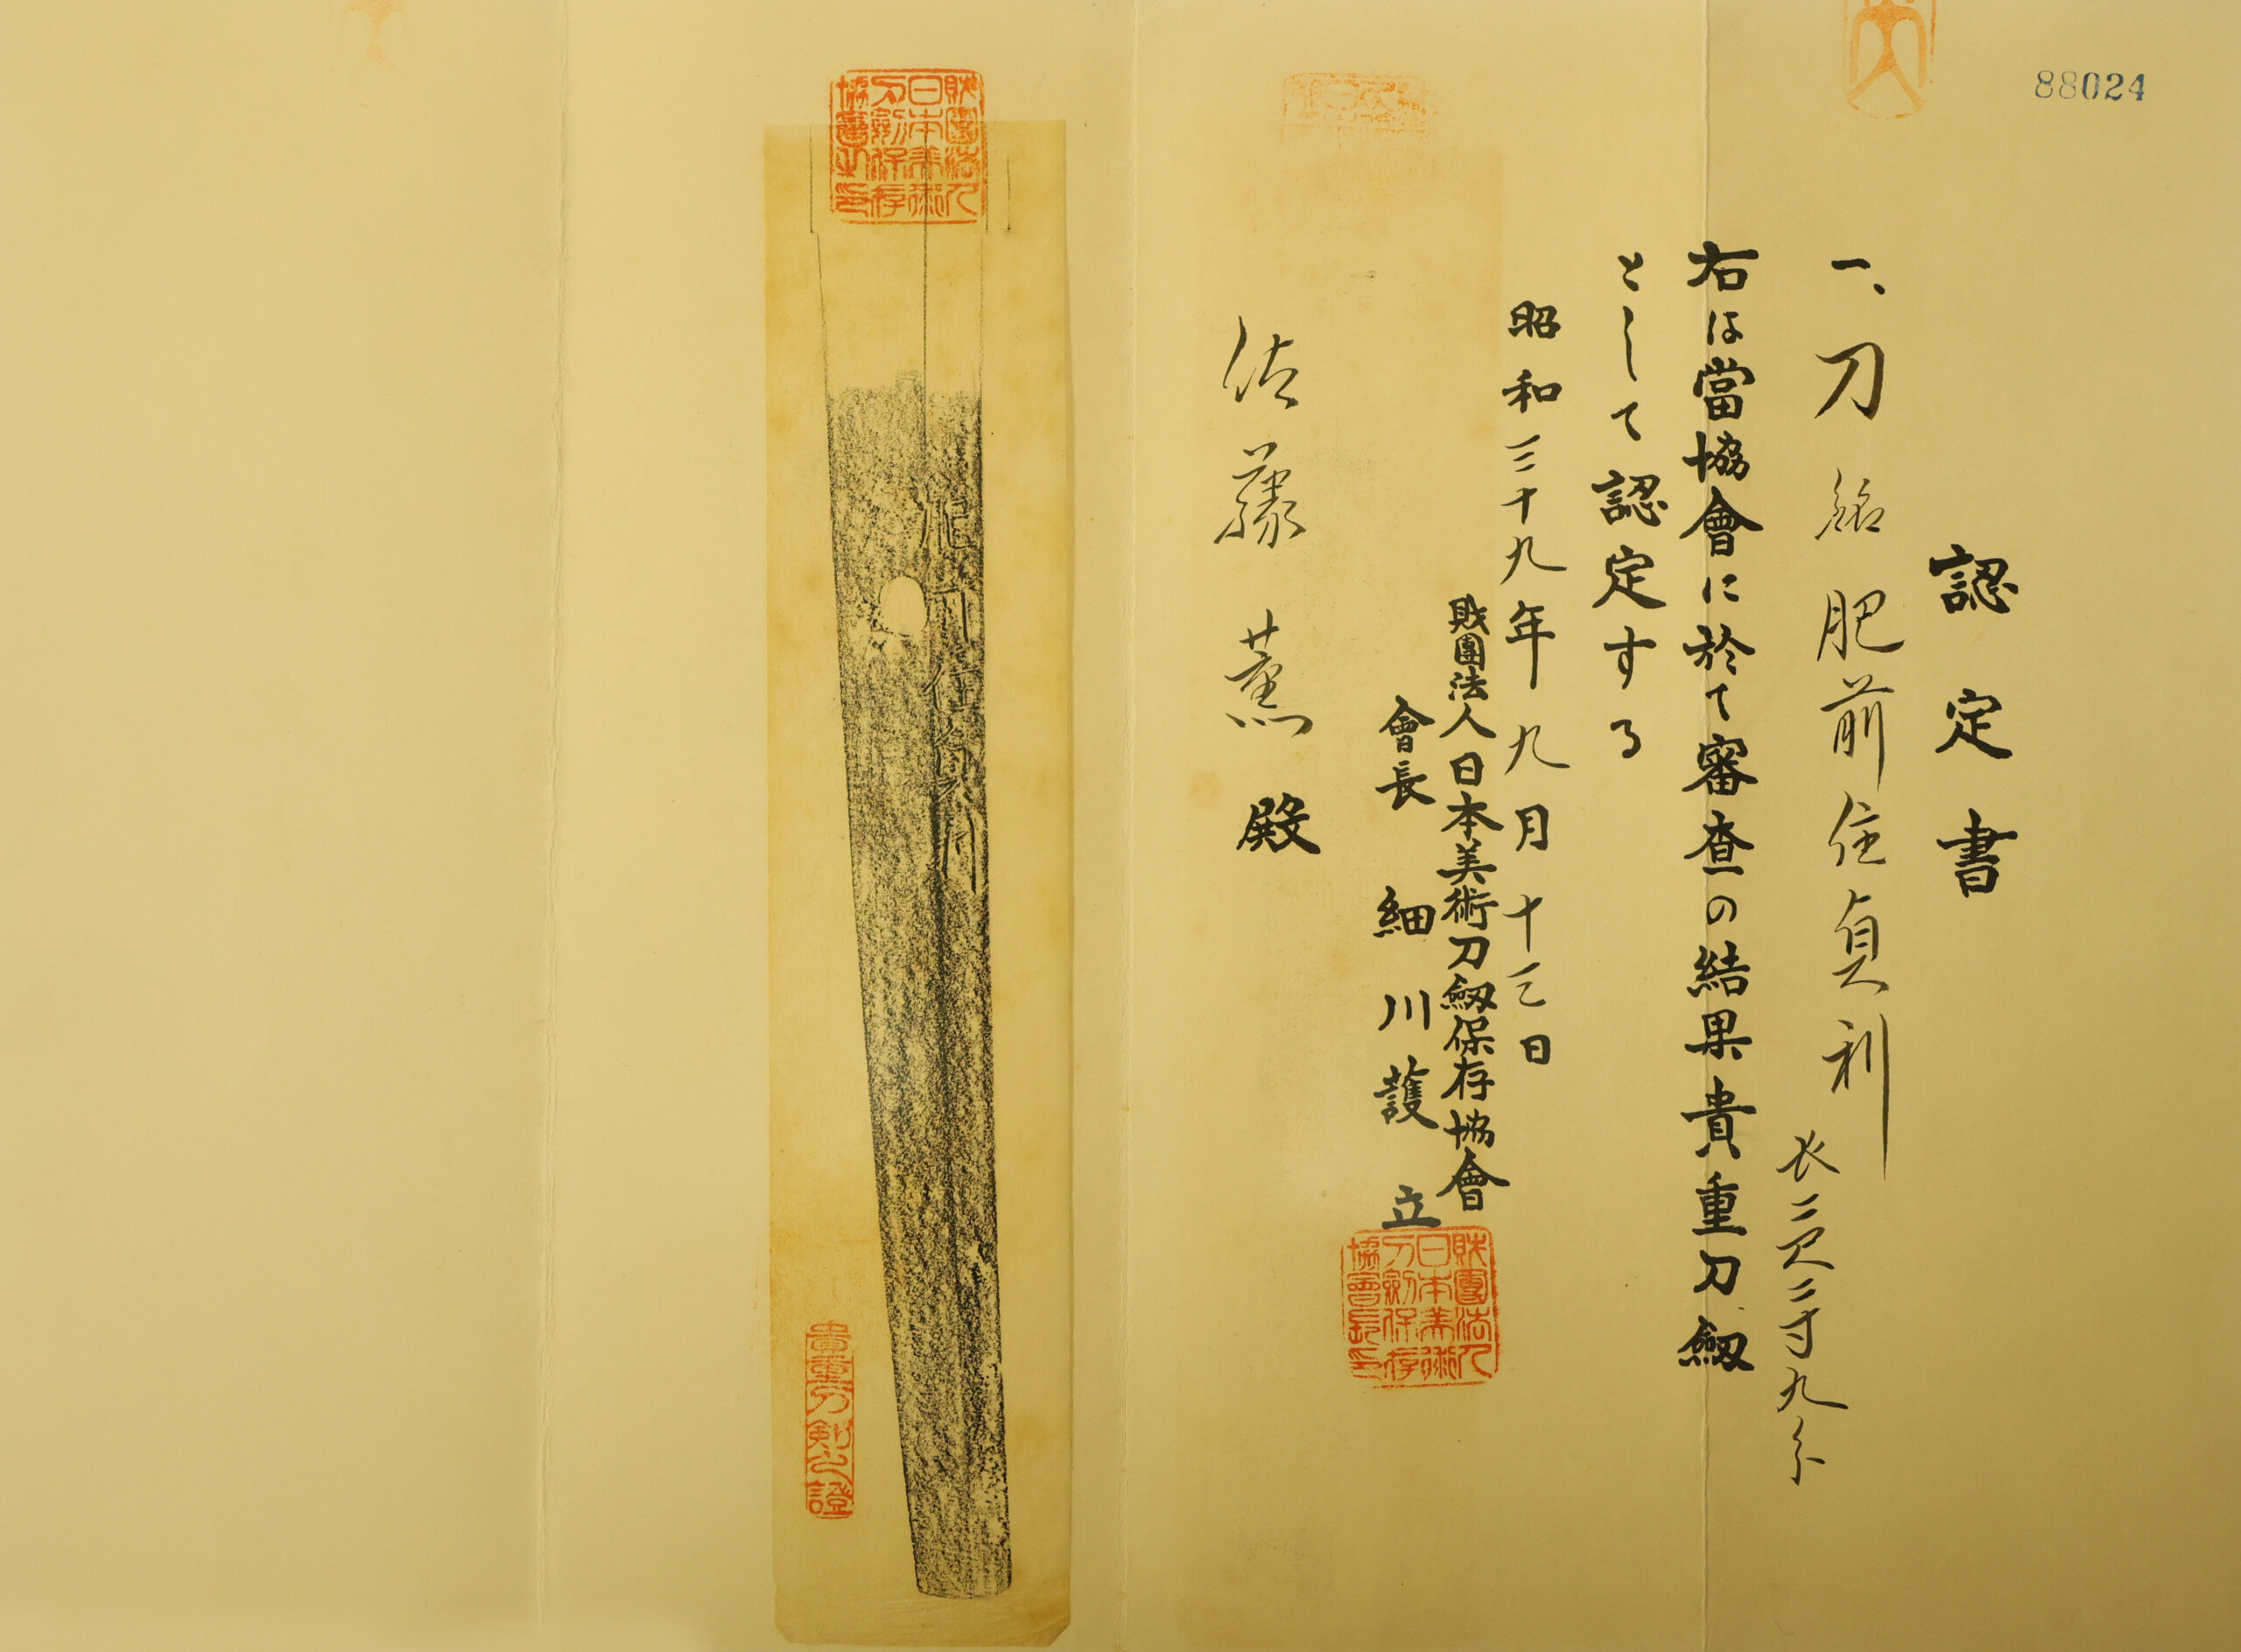 88024
認定書
一、刀 銘 肥前住貞利 長二尺二寸九分
右は當協會に於て審査の結果貴重刀劔
として認定する
昭和三十九年九月十三日
財團法人日本美術刀劔保存協會
會長 細川護立
財團法人
日本美術
刀劍保存
協會長印
佐藤薫殿
財團法人
日本美術
刀劍保存
協會之印
肥前住貞利
貴重刀剣之證